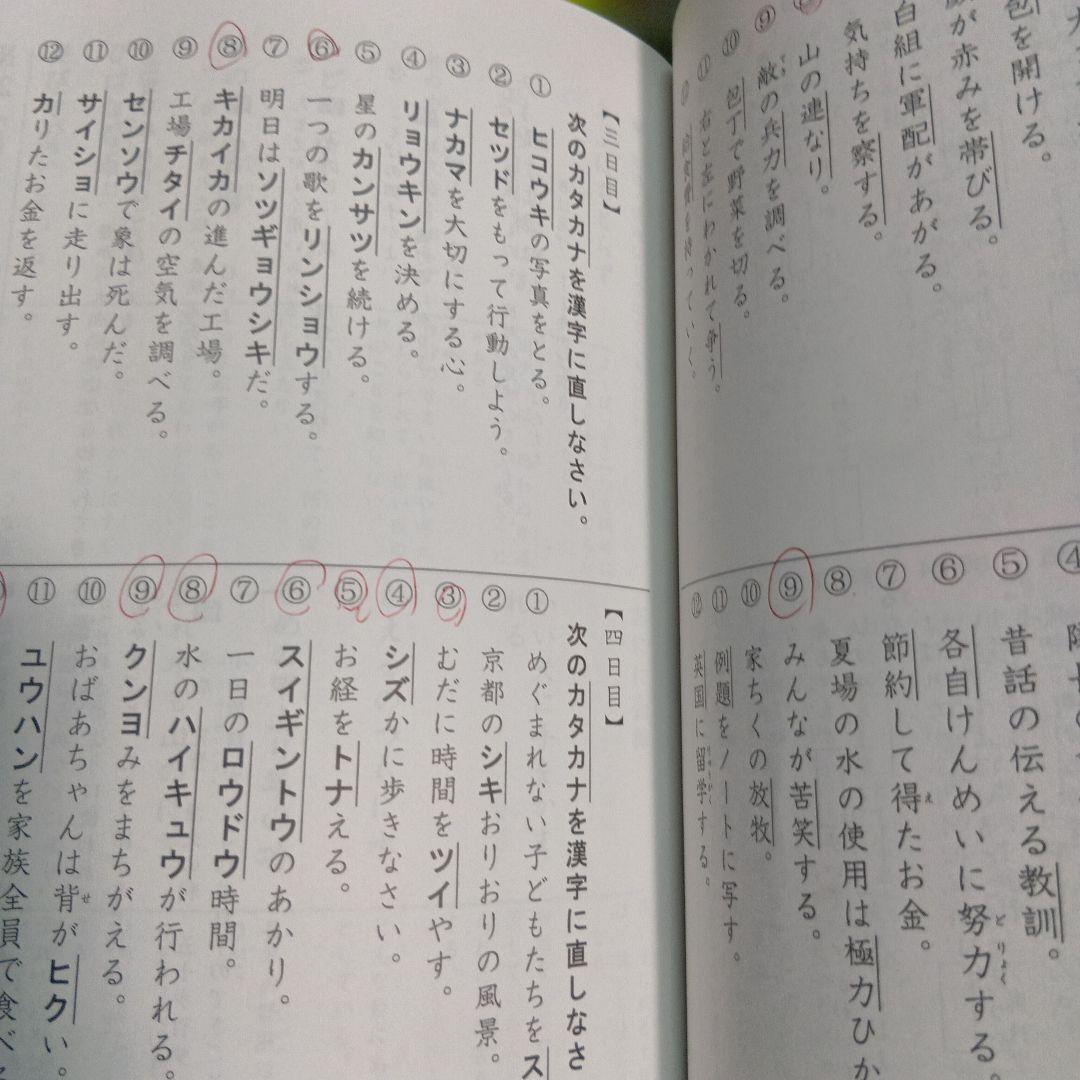 包を開ける。
敵が赤みを帯びる。
白組に軍配があがる。
気持ちを察する。
山の連なり。
⑨ 敵の兵力を調べる。
⑩ 包丁で野菜を切る。
⑪ 右と左にわかれて争う。
④
⑤ 昔話の伝える教訓。
⑥ 各自けんめいに努力する。
どりょく
⑦ 節約して得たお金。
え
⑧ 夏場の水の使用は極力ひか
⑨ みんなが苦笑する。
⑩ 家ちくの放牧。
⑪ 例題をノートに写す。
⑫ 英国に留学する。
【三日目】
次のカタカナを漢字に直しなさい。
① ヒコウキの写真をとる。
② セツドをもって行動しよう。
③ ナカマを大切にする心。
④ リョウキンを決める。
⑤ 星のカンサツを続ける。
⑥ 一つの歌をリンショウする。
⑦ 明日はソツギョウシキだ。
⑧ キカイカの進んだ工場。
⑨ 工場チタイの空気を調べる。
⑩ センソウで象は死んだ。
⑪ サイショに走り出す。
⑫ カりたお金を返す。
【四日目】
次のカタカナを漢字に直しなさ
① めぐまれない子どもたちをス
② 京都のシキおりおりの風景。
③ むだに時間をツイやす。
④ シズかに歩きなさい。
⑤ お経をトナえる。
⑥ スイギントウのあかり。
⑦ 一日のロウドウ時間。
⑧ 水のハイキュウが行われる。
⑨ クンヨみをまちがえる。
⑩ おばあちゃんは背がヒクい。
せ
⑪ ユウハンを家族全員で食べ